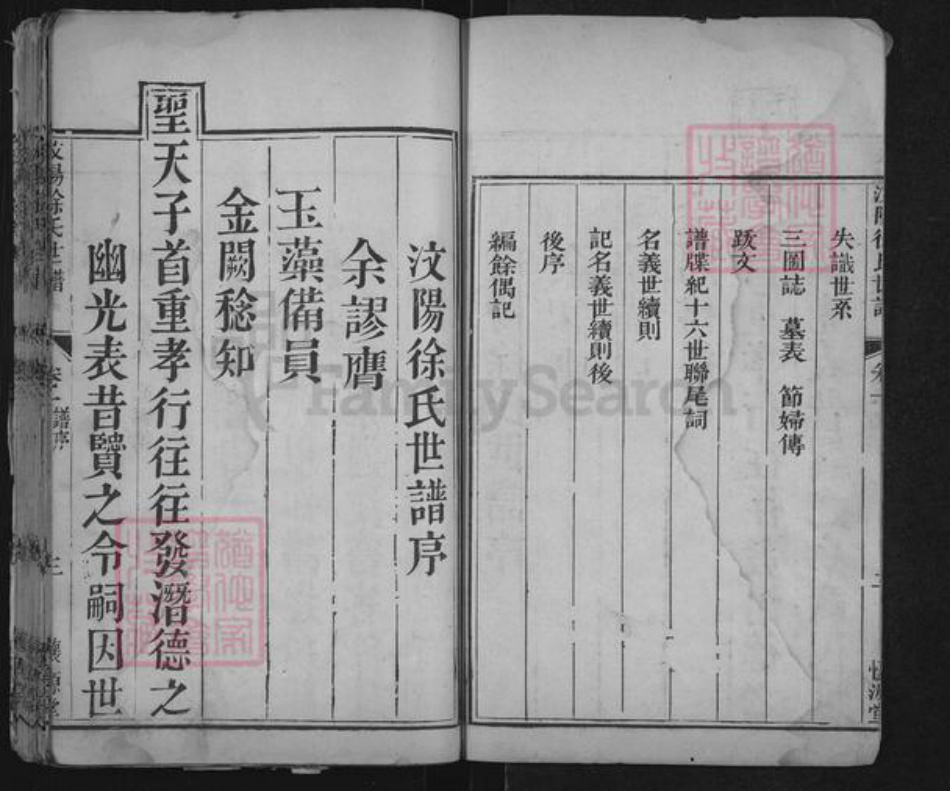 失識世系
三圖誌 墓表 節婦傳
跋文
譜牒紀十六世聯尾詞
名義世續則
記名義世續則後
後序
編餘偶記
汶陽徐氏世譜序
余謬膺
玉藻備員
金闕稔知
聖天子首重孝行往往發潛德之
幽光表昔賢之令嗣因世
汶陽徐氏世譜 卷一 譜序 三 懷源堂
FamilySearch